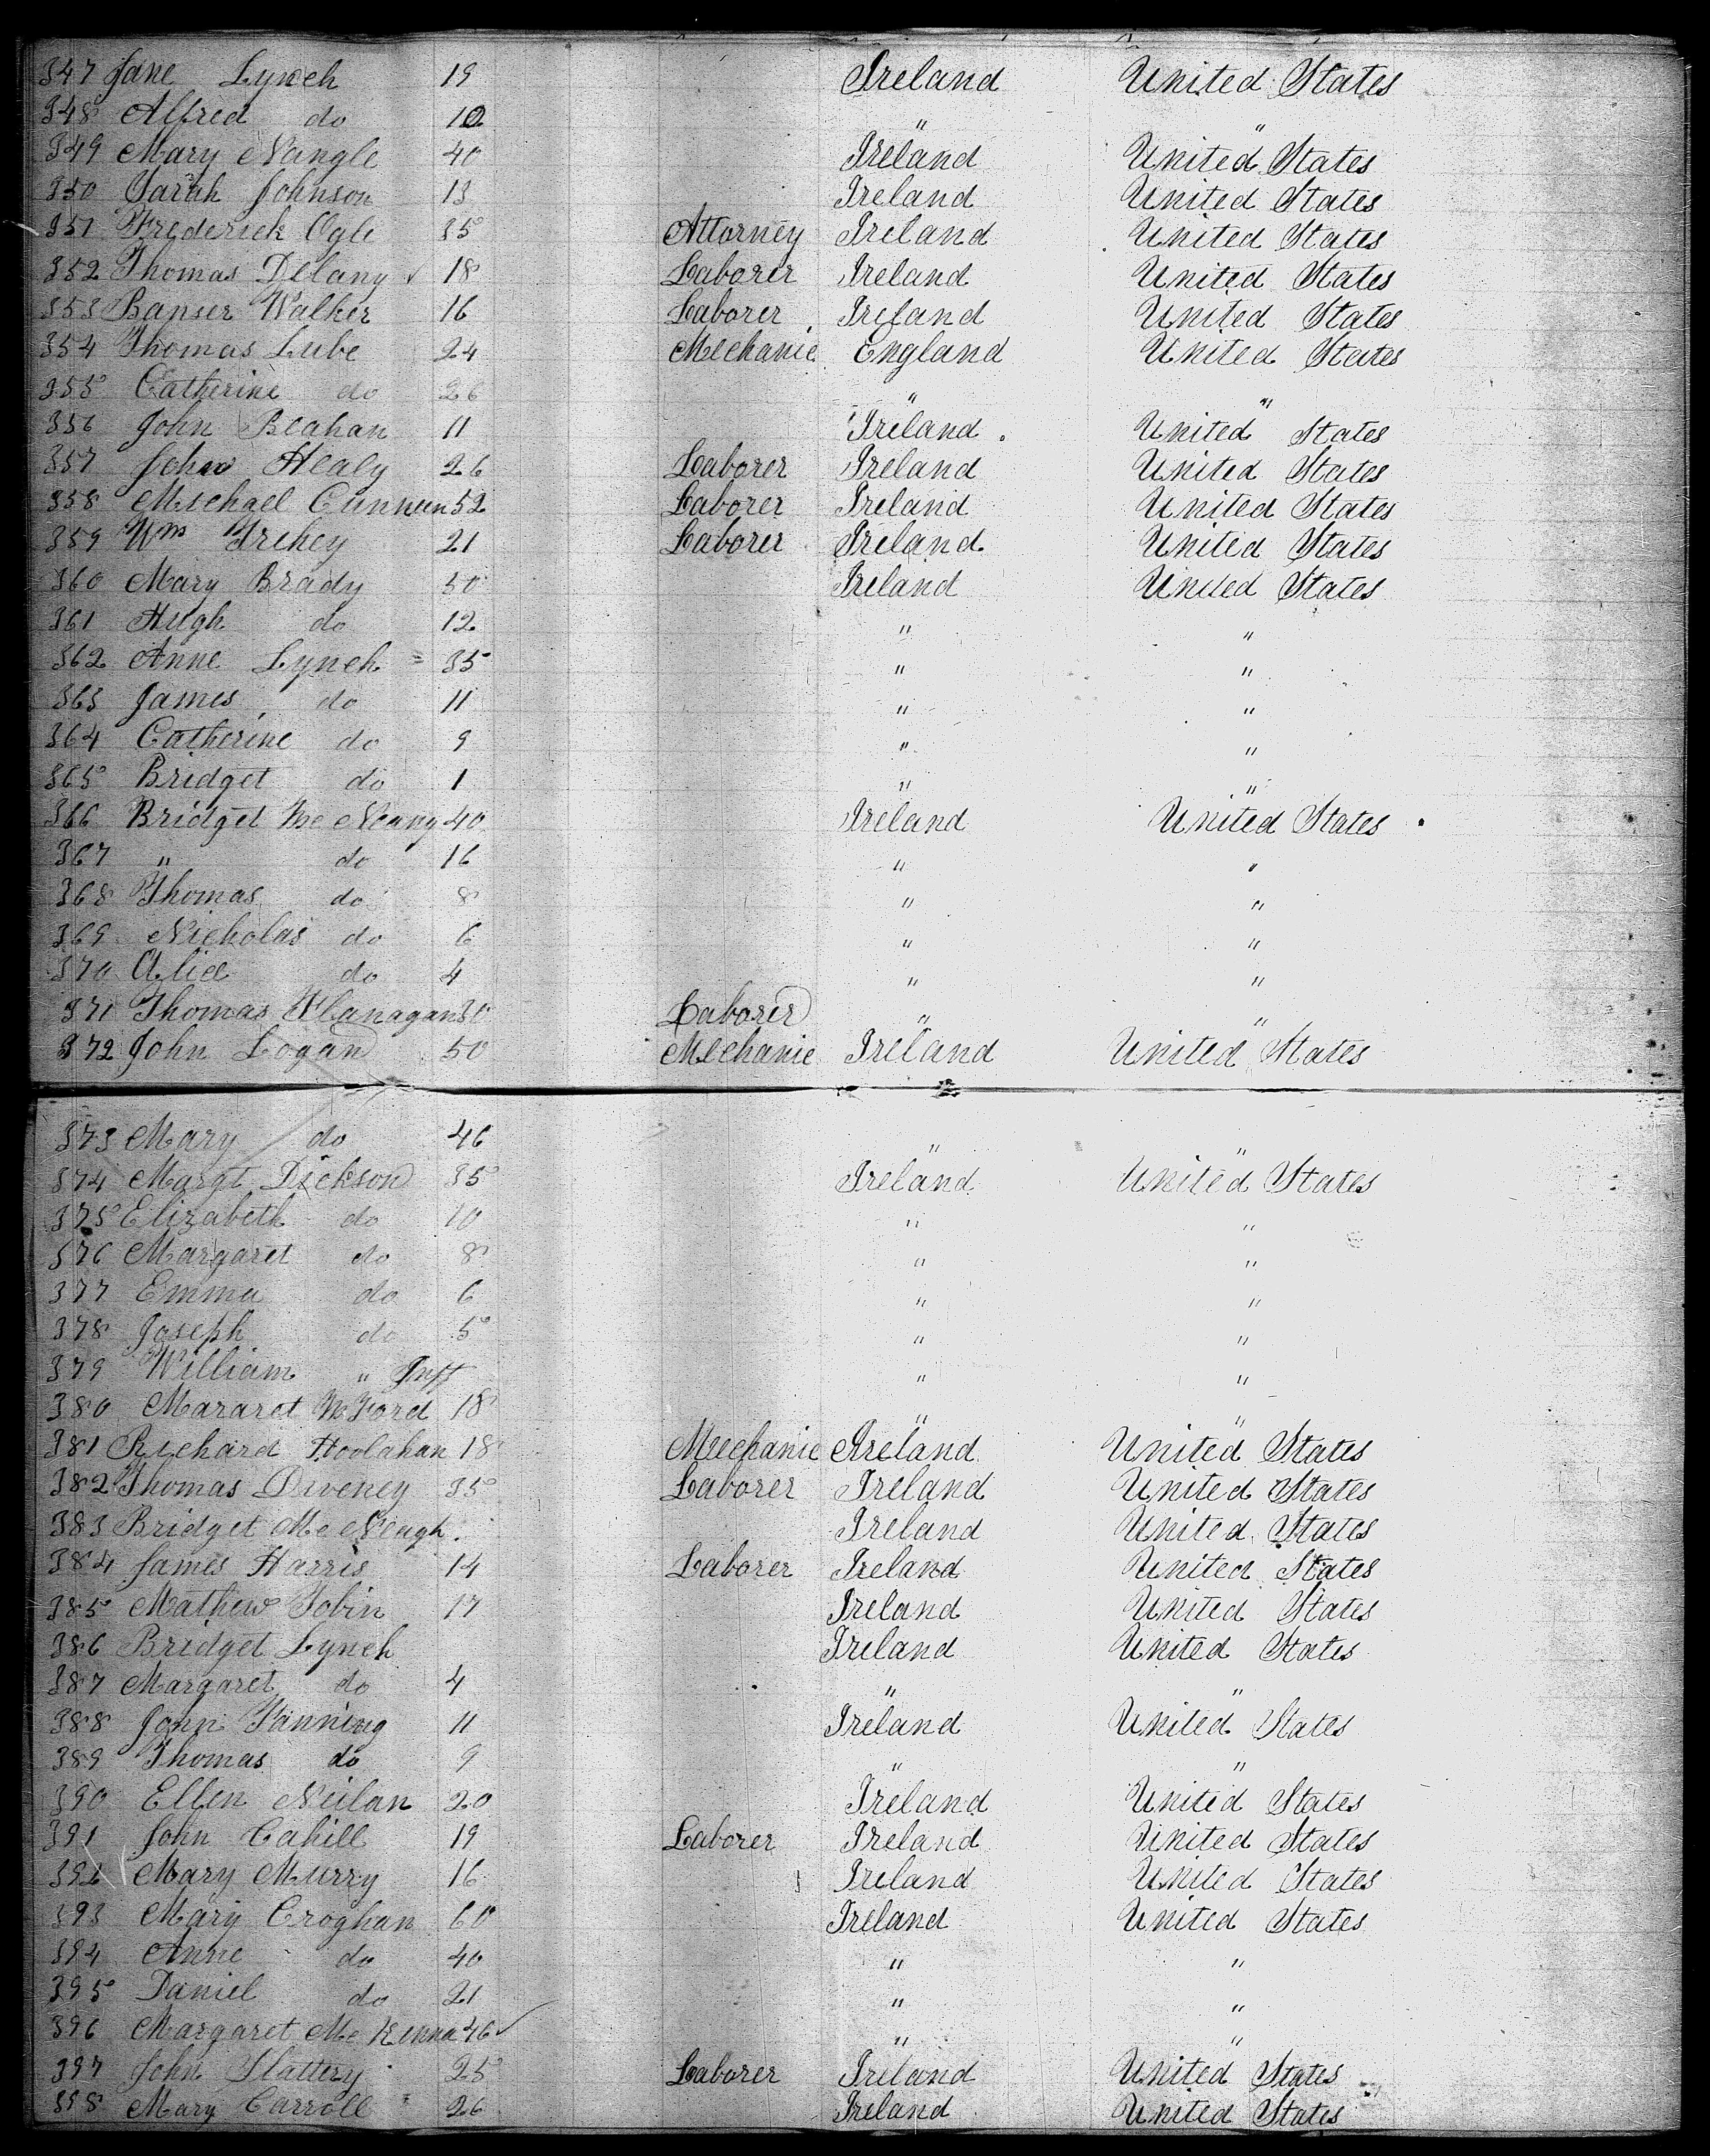 347 Jane Lynch 19 Ireland United States
348 Alfred do 10 " "
349 Mary Nangle 40 Ireland United States
350 Sarah Johnson 13 Ireland United States
351 Frederick Ogle 35 Attorney Ireland United States
352 Thomas Delany 18 Laborer Ireland United States
353 Walker 16 Laborer Ireland United States
354 Thomas Lube 24 Mechanic England United States
355 Catherine do 26 " "
356 John Beahan 11 Ireland United States
357 John Healy 26 Laborer Ireland United States
358 Michael Cunneen 52 Laborer Ireland United States
359 Wm Trehey 21 Laborer Ireland United States
360 Mary Brady 50 Ireland United States
361 Hugh do 12 " "
362 Anne Lynch 35 " "
363 James do 11 " "
364 Catherine do 9 " "
365 Bridget do 1 " "
366 Bridget 40 Ireland United States
367 " do 16 " "
368 Thomas do 8 " "
369 Nicholas do 6 " "
370 Alice do 4 " "
371 Thomas Flanagan 30 Laborer " "
372 John Logan 50 Mechanic Ireland United States
373 Mary do 46 " "
374 Margt Dickson 35 Ireland United States
375 Elizabeth do 10 " "
376 Margaret do 8 " "
377 Emma do 6 " "
378 Joseph do 5 " "
379 William " Inft " "
380 Mararet McFord 18 " "
381 Richard Hoolahan 18 Mechanic Ireland United States
382 Thomas Diveney 35 Laborer Ireland United States
383 Bridget Mc Neagh Ireland United States
384 James Harris 14 Laborer Ireland United States
385 Mathew Tobin 17 Ireland United States
386 Bridget Lynch Ireland United States
387 Margaret do 4 " "
388 John Fanning 11 Ireland United States
389 Thomas do 9 " "
390 Ellen Neilan 20 Ireland United States
391 John Cahill 19 Laborer Ireland United States
392 Mary Murry 16 Ireland United States
393 Mary Croghan 60 Ireland United States
394 Anne do 40 " "
395 Daniel do 21 " "
396 Margaret Mc Kenna 46 " "
397 John Slattery 25 Laborer Ireland United States
398 Mary Carroll 26 Ireland United States